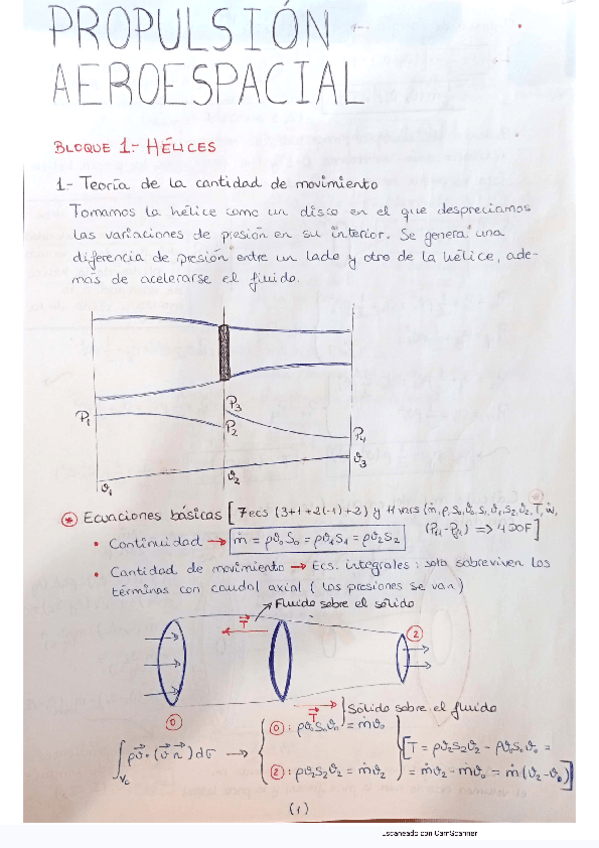 PROPULSIÓN
AEROESPACIAL
BLOQUE 1.- HÉLICES
1- Teoría de la cantidad de movimiento
Tomamos la hélice como un disco en el que despreciamos
las variaciones de presión en su interior. Se genera una
diferencia de presión entre un lado y otro de la hélice, ade-
más de acelerarse el fluido.
P1
P3
P2
P4
ϑ3
ϑ2
ϑ1
* Ecuaciones básicas [7 ecs (3+1+2(-1)+2) y 11 vars (ṁ, ρ, S0, ϑ0, S1, ϑ1, S2, ϑ2, T, Ẇ,
• Continuidad → ṁ = ρϑ0S0 = ρϑ1S1 = ρϑ2S2
=> 4 DOF]
• Cantidad de movimiento → Ecs. integrales: solo sobreviven los
términos con caudal axial (las presiones se van)
Fluido sobre el sólido
T
2
T } Sólido sobre el fluido
0
0: ρϑ0S0ϑ0 = ṁϑ0
[T = ρϑ2S2ϑ2 - ρϑ0S0ϑ0 =
∫Vc ρv⃗·(v⃗ n⃗)dσ →
2: ρϑ2S2ϑ2 = ṁϑ2
= ṁϑ2 - ṁϑ0 = ṁ(ϑ2-ϑ0)]
(1)
Escaneado con CamScanner